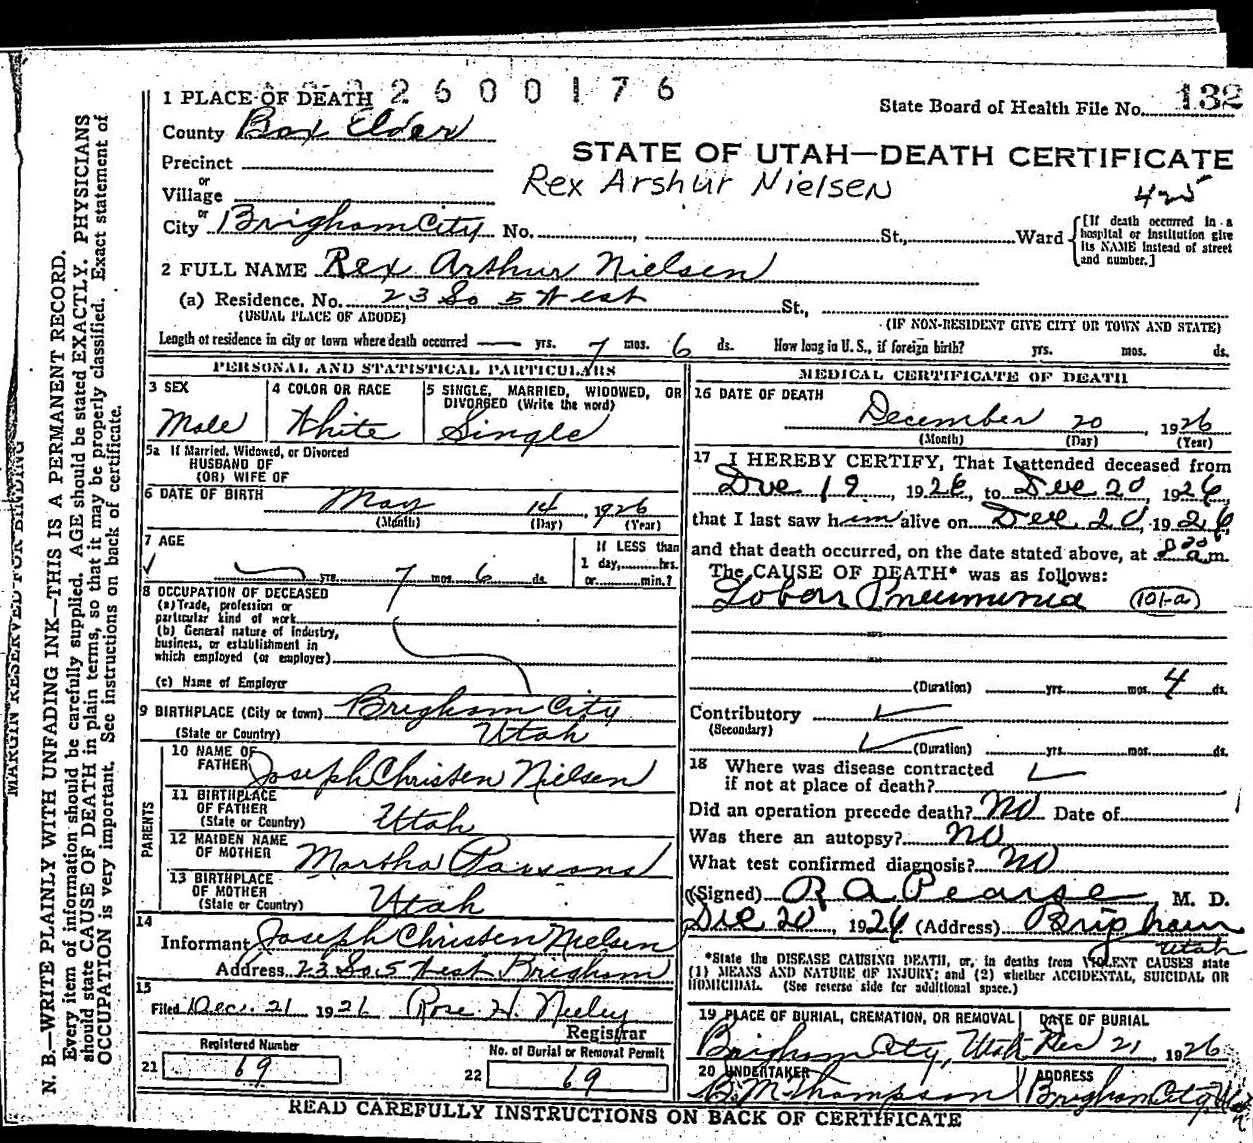 2600176
1 PLACE OF DEATH
State Board of Health File No. 132
County Box Elder
STATE OF UTAH—DEATH CERTIFICATE
Precinct
Rex Arshur Nielsen
or
Village
or
City Brigham City No. , St., Ward {[If death occurred in a hospital or institution give its NAME instead of street and number.]
2 FULL NAME Rex Arthur Nielsen
(a) Residence. No. 23 So 5 West St.,
(USUAL PLACE OF ABODE) (IF NON-RESIDENT GIVE CITY OR TOWN AND STATE)
Length of residence in city or town where death occurred — yrs. 7 mos. 6 ds. How long in U. S., if foreign birth? yrs. mos. ds.
PERSONAL AND STATISTICAL PARTICULARS
3 SEX
Male
4 COLOR OR RACE
White
5 SINGLE, MARRIED, WIDOWED, OR
DIVORCED (Write the word)
Single
5a If Married, Widowed, or Divorced
HUSBAND OF
(OR) WIFE OF
6 DATE OF BIRTH May 14, 1926
(Month) (Day) (Year)
7 AGE
yrs. 7 mos. 6 ds.
If LESS than
1 day, hrs.
or min.?
8 OCCUPATION OF DECEASED
(a) Trade, profession or
particular kind of work
(b) General nature of industry,
business, or establishment in
which employed (or employer)
(c) Name of Employer
9 BIRTHPLACE (City or town) Brigham City
(State or Country) Utah
PARENTS
10 NAME OF
FATHER Joseph Christen Nielsen
11 BIRTHPLACE
OF FATHER
(State or Country) Utah
12 MAIDEN NAME
OF MOTHER Martha Parsons
13 BIRTHPLACE
OF MOTHER
(State or Country) Utah
14
Informant Joseph Christen Nielsen
Address 23 So. 5 West Brigham
15
Filed Dec. 21 1926 Rose H. Neeley
Registrar
Registered Number
21 69
No. of Burial or Removal Permit
22 69
MEDICAL CERTIFICATE OF DEATH
16 DATE OF DEATH
December 20, 1926
(Month) (Day) (Year)
17 I HEREBY CERTIFY, That I attended deceased from
Dec 19, 1926, to Dec 20, 1926,
that I last saw him alive on Dec 20, 1926,
and that death occurred, on the date stated above, at 8 a m.
The CAUSE OF DEATH* was as follows:
Lobar Pneumonia (101-a)
(Duration) yrs. mos. 4 ds.
Contributory
(Secondary)
(Duration) yrs. mos. ds.
18 Where was disease contracted
if not at place of death?
Did an operation precede death? No Date of
Was there an autopsy? No
What test confirmed diagnosis? No
(Signed) R A Pearse M. D.
Dec 20, 1926 (Address) Brigham
Utah
*State the DISEASE CAUSING DEATH, or, in deaths from VIOLENT CAUSES state
(1) MEANS AND NATURE OF INJURY; and (2) whether ACCIDENTAL, SUICIDAL OR
HOMICIDAL. (See reverse side for additional space.)
19 PLACE OF BURIAL, CREMATION, OR REMOVAL
Brigham City, Utah
DATE OF BURIAL
Dec 21, 1926
20 UNDERTAKER
B. M. Thompson
ADDRESS
Brigham City,
READ CAREFULLY INSTRUCTIONS ON BACK OF CERTIFICATE
MARGIN RESERVED FOR BINDING
N. B.—WRITE PLAINLY WITH UNFADING INK—THIS IS A PERMANENT RECORD.
Every item of information should be carefully supplied. AGE should be stated EXACTLY. PHYSICIANS
should state CAUSE OF DEATH in plain terms, so that it may be properly classified. Exact statement of
OCCUPATION is very important. See instructions on back of certificate.